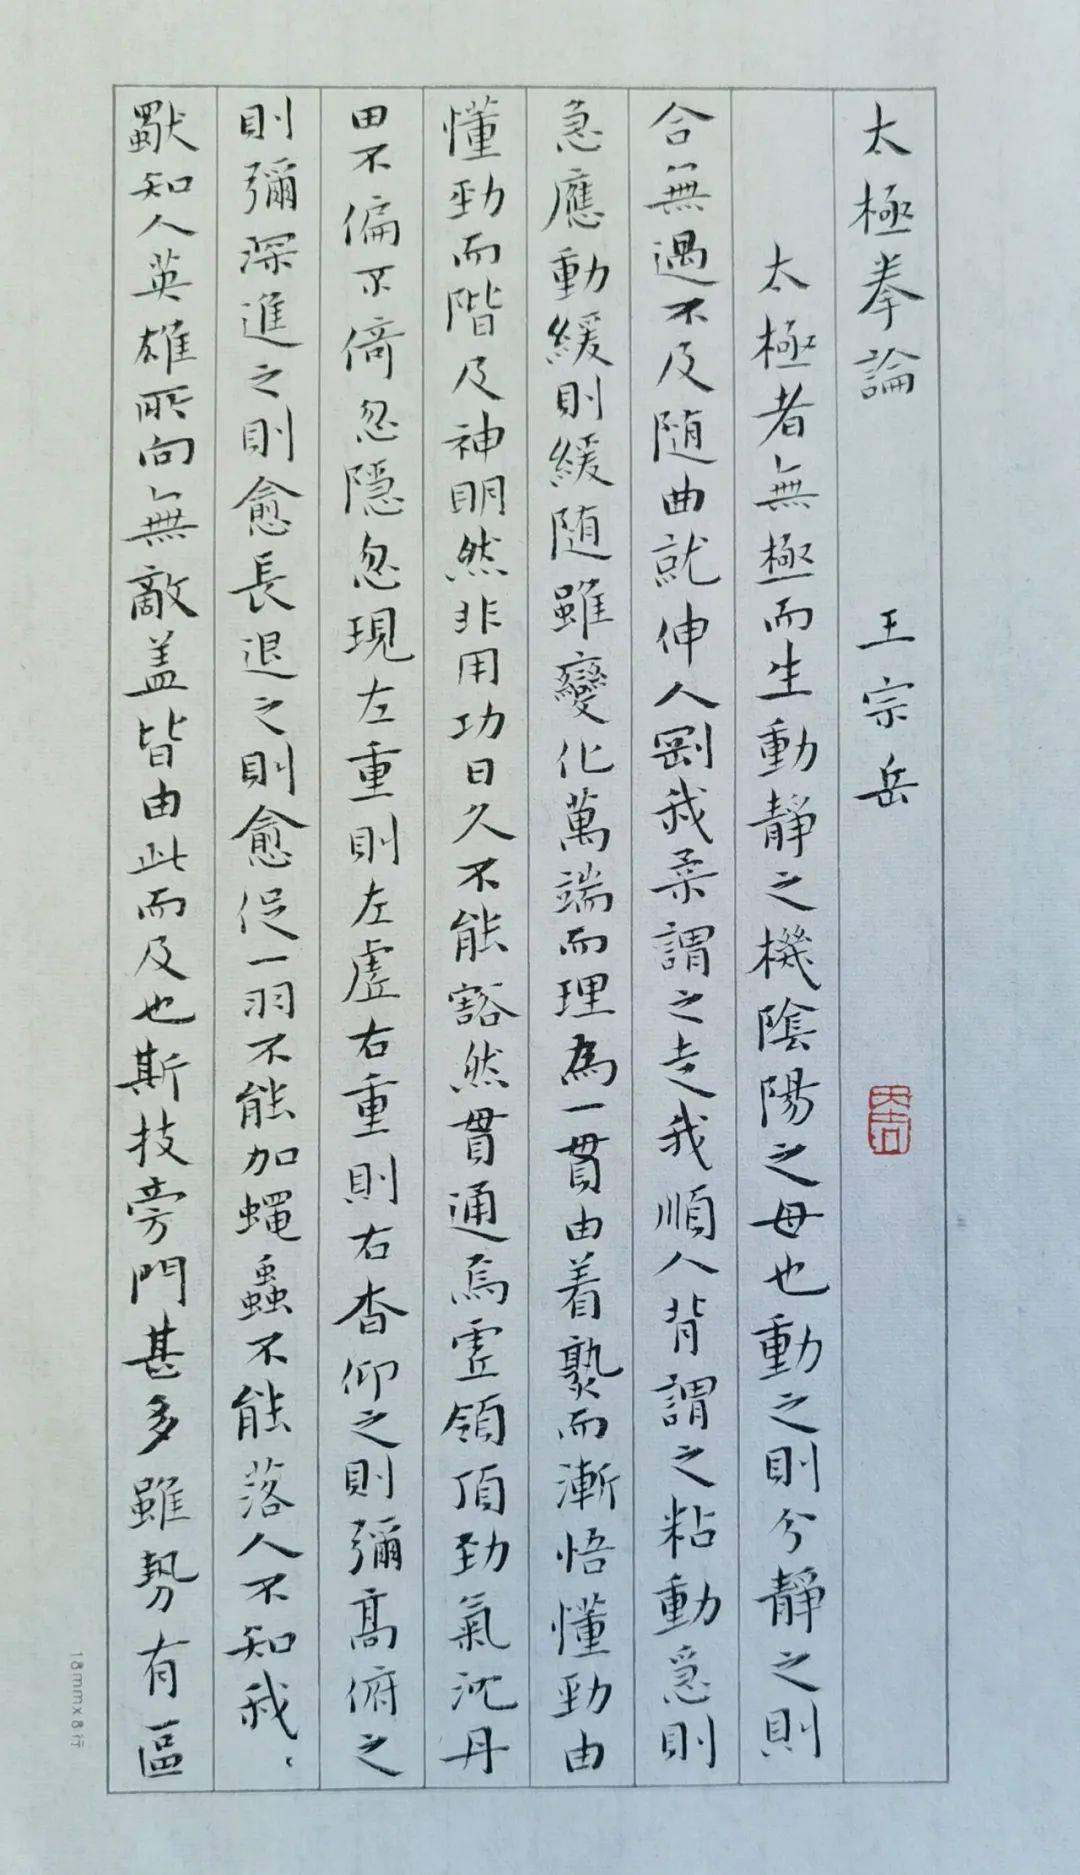 太極拳論 王宗岳
太極者無極而生動靜之機陰陽之母也動之則分靜之則
合無過不及随曲就伸人剛我柔謂之走我順人背謂之粘動急則
急應動緩則緩随雖變化萬端而理為一貫由着熟而漸悟懂勁由
懂勁而階及神明然非用功日久不能豁然貫通焉虛領頂勁氣沈丹
田不偏不倚忽隱忽現左重則左虛右重則右杳仰之則彌高俯之
則彌深進之則愈長退之則愈促一羽不能加蠅蟲不能落人不知我、
獨知人英雄所向無敵盖皆由此而及也斯技旁門甚多雖勢有區
18mmx8行